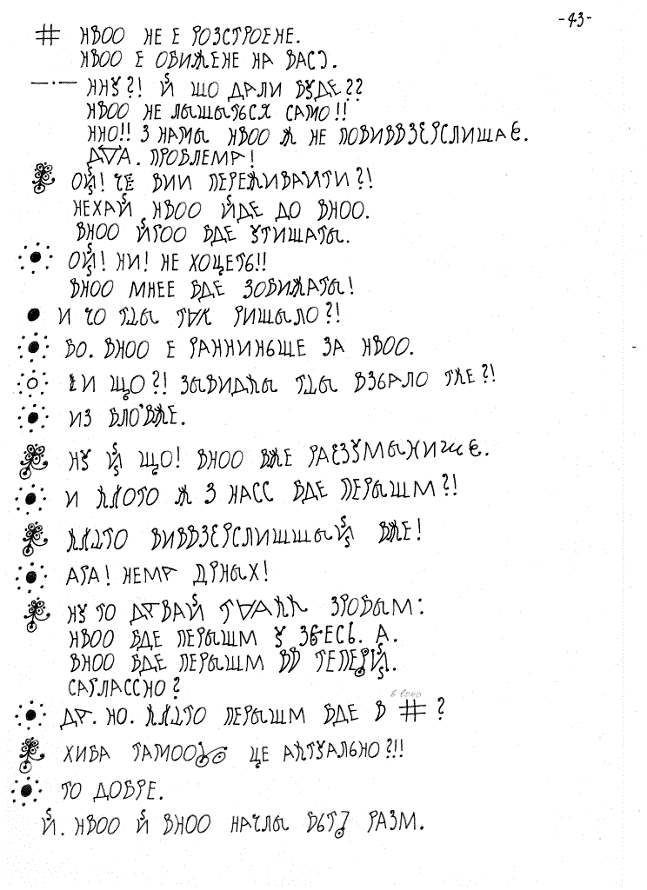 -43-
# НВОО НЕ Е РОЗСТРОЕНЕ.
НВОО Е ОБИЖЕНЕ НА ВАС).
—·— ННУ?! Й ШО ДАЛИ БУДЕ??
НВОО НЕ ЛЫШЫТЬСЯ САМО!!
ННО!! З НАМЫ НВОО Ж НЕ ПОВИВВЗЕРСЛИШАЄ.
ДVА. ПРОБЛЕМА!
ОЙ! ЧЕ ВИИ ПЕРЕЖИВАИТИ?!
НЕХАЙ НВОО ЙДЕ ДО ВНОО.
ВНОО ЙГОО БДЕ УТИШАТЫ.
ОЙ! НИ! НЕ ХОЦЕТЬ!!
ВНОО МНЕЕ БДЕ ЗОБИЖАТЫ!
И ЧО ТЦЫ ТАК РИШЫЛО?!
БО. ВНОО Е РАННИНЬШЕ ЗА НВОО.
ЩО?! ЗЫВИДКЫ ТЦЫ ВЗЬАЛО ТКЕ?!
ИЗ ВЛО'ВЖЕ.
НУ Й ЩО! ВНОО ВЖЕ РАЄЗУМЫНИШЄ.
И ККОТО Ж З НАСС БДЕ ПЕРЫШМ?!
ККДТО ВИВВЗЕРСЛИШШЫЙ ВЖЕ!
АГА! НЕМА ДРНЫХ!
НУ ТО ДАВАЙ ТАКК ЗРОБЫМ:
НВОО БДЕ ПЕРЫШМ У ЗБЕСЬ. А.
ВНОО БДЕ ПЕРЫШМ ВВ ТЕПЕРЙ.
САГЛАССНО?
ДА. НО. ККДТО ПЕРЫШМ БДЕ В # ?
ХИБА ЦЕ АКТУАЛЬНО?!!
ТО ДОБРЕ.
Й. НВОО Й ВНОО НАЧЛЫ РАЗМ.